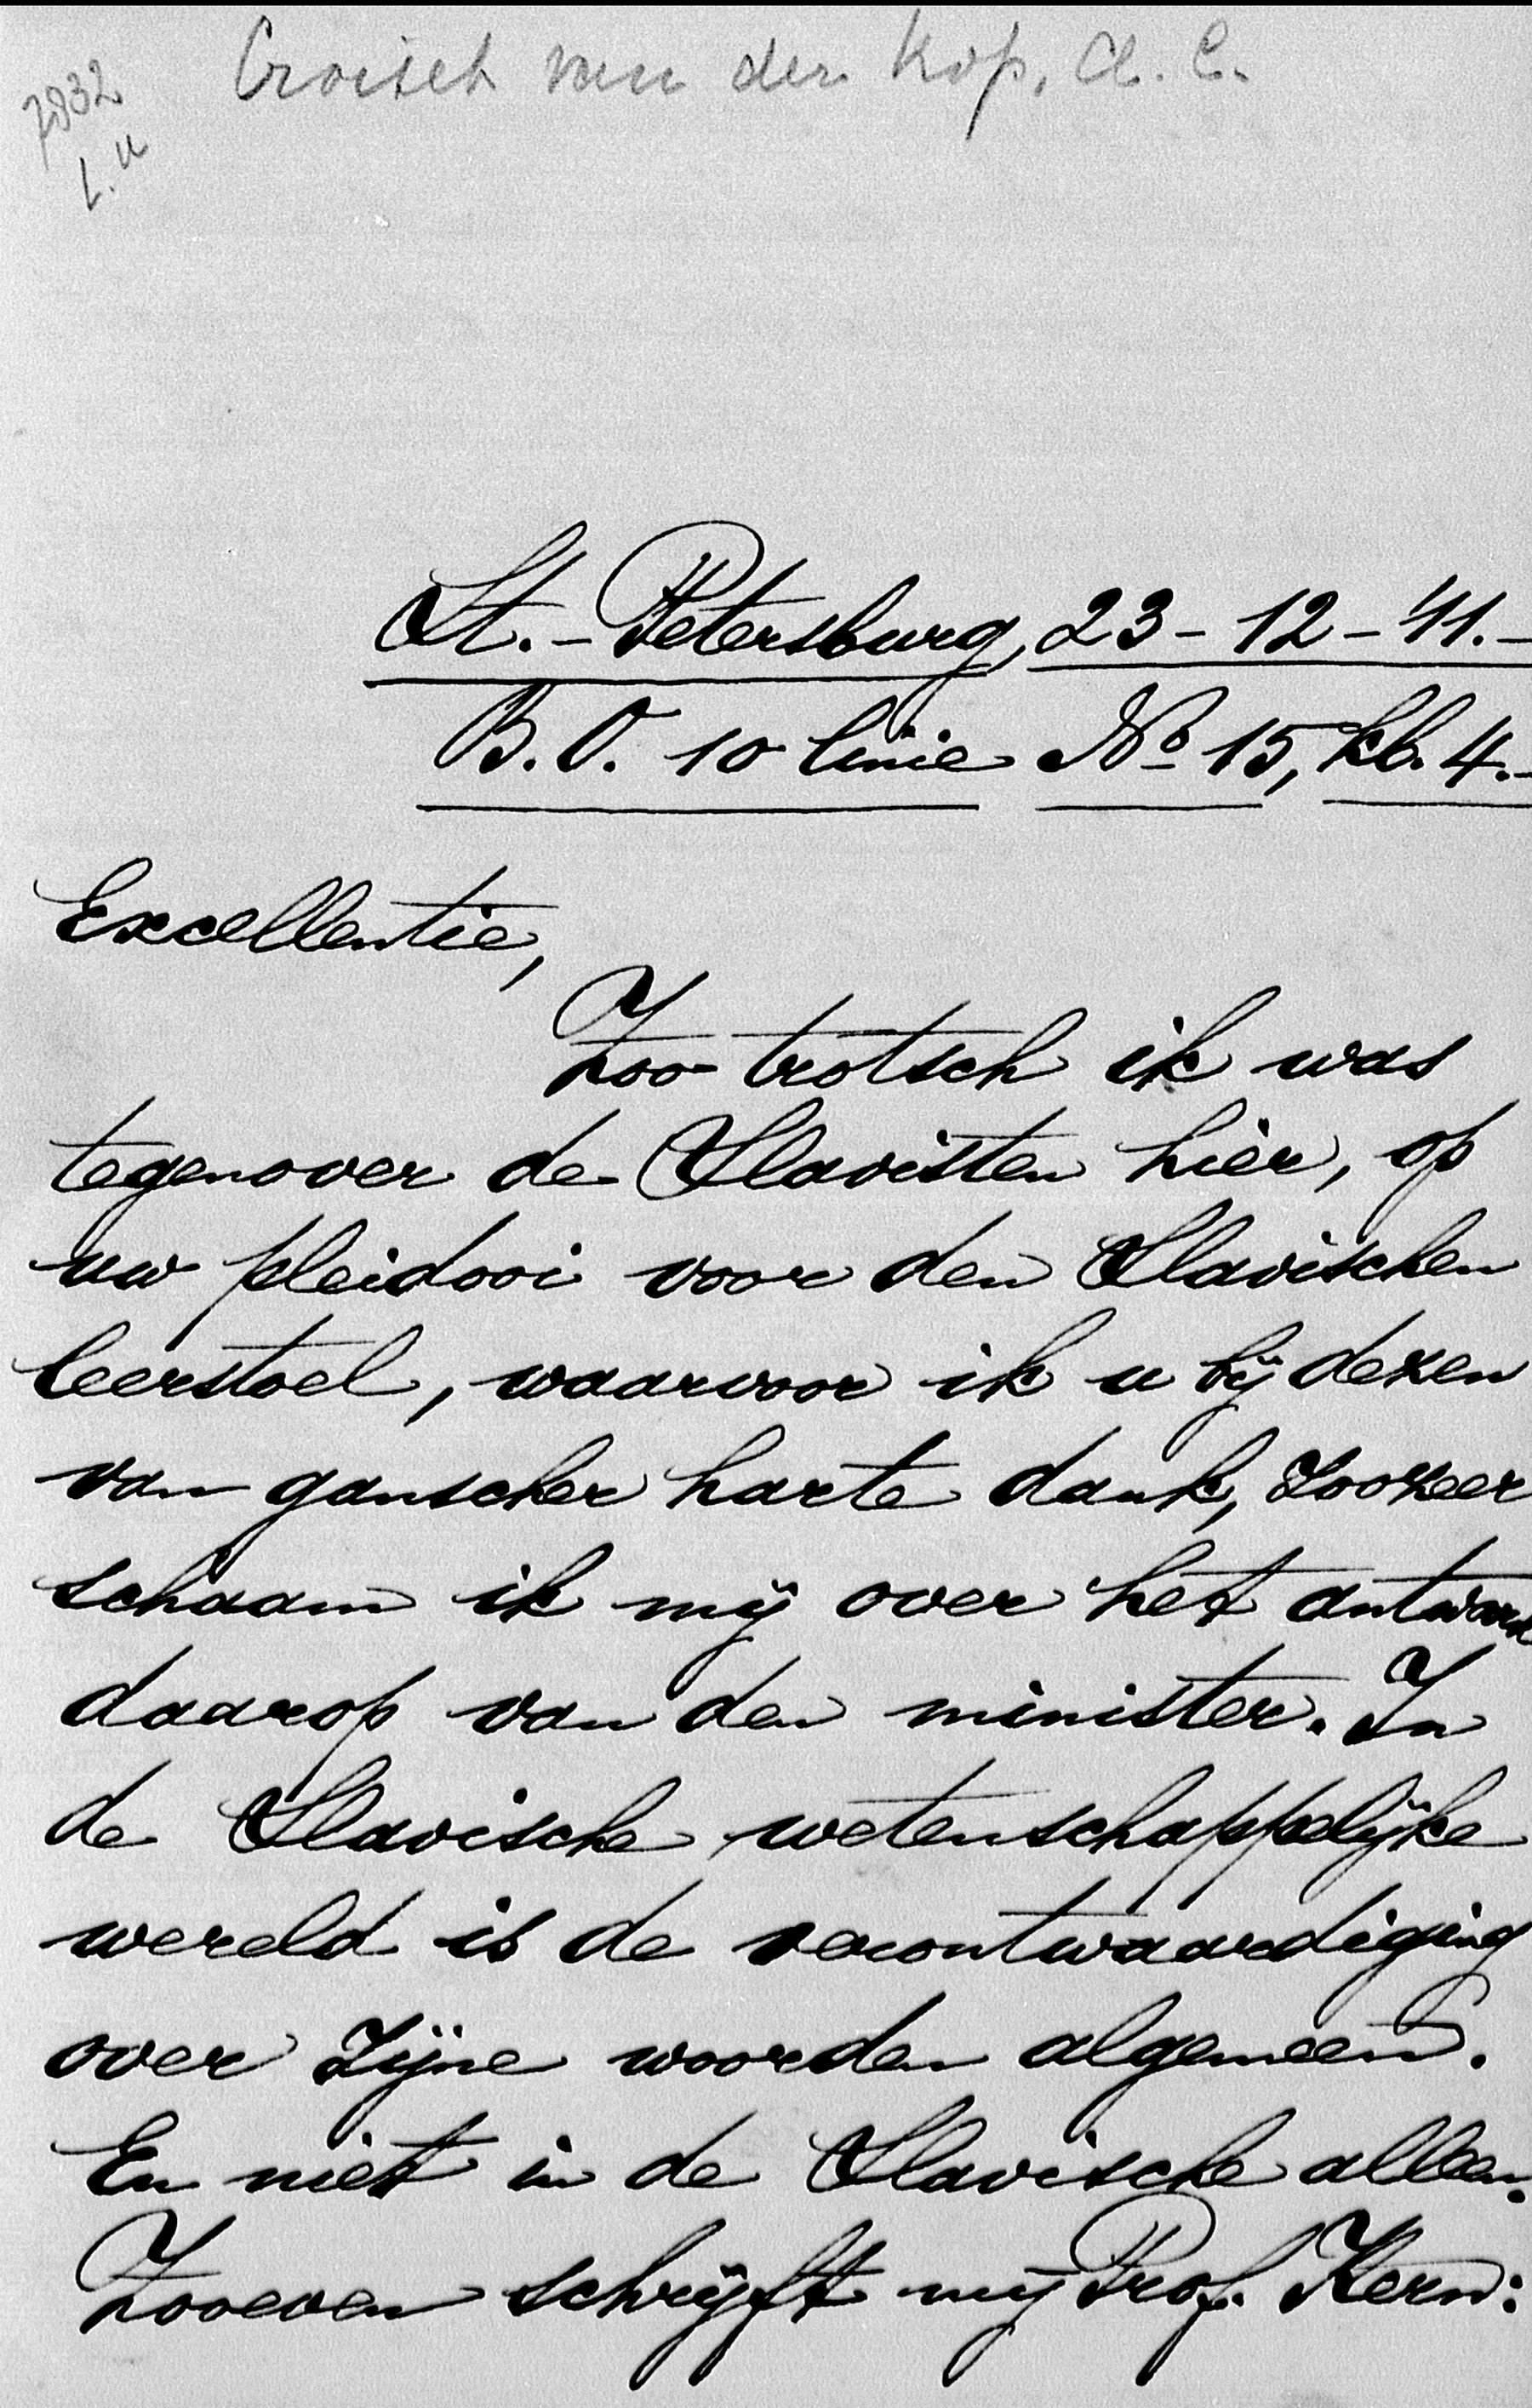 Croiset van der Kop, A. C.
7832
L.u
St.-Petersburg, 23-12-'11.-
B.O. 10 linie No 15, kb. 4.-
Excellentie,
Zoo trotsch ik was
tegenover de Slavisten hier, op
uw pleidooi voor den Slavischen
leerstoel, waarvoor ik u bij dezen
van ganscher harte dank, zoozeer
schaam ik mij over het antwoord
daarop van den minister. In
de Slavische wetenschappelijke
wereld is de verontwaardiging
over zijne woorden algemeen.
En niet in de Slavische alleen.
Zooeven schrijft mij Prof. Kern: